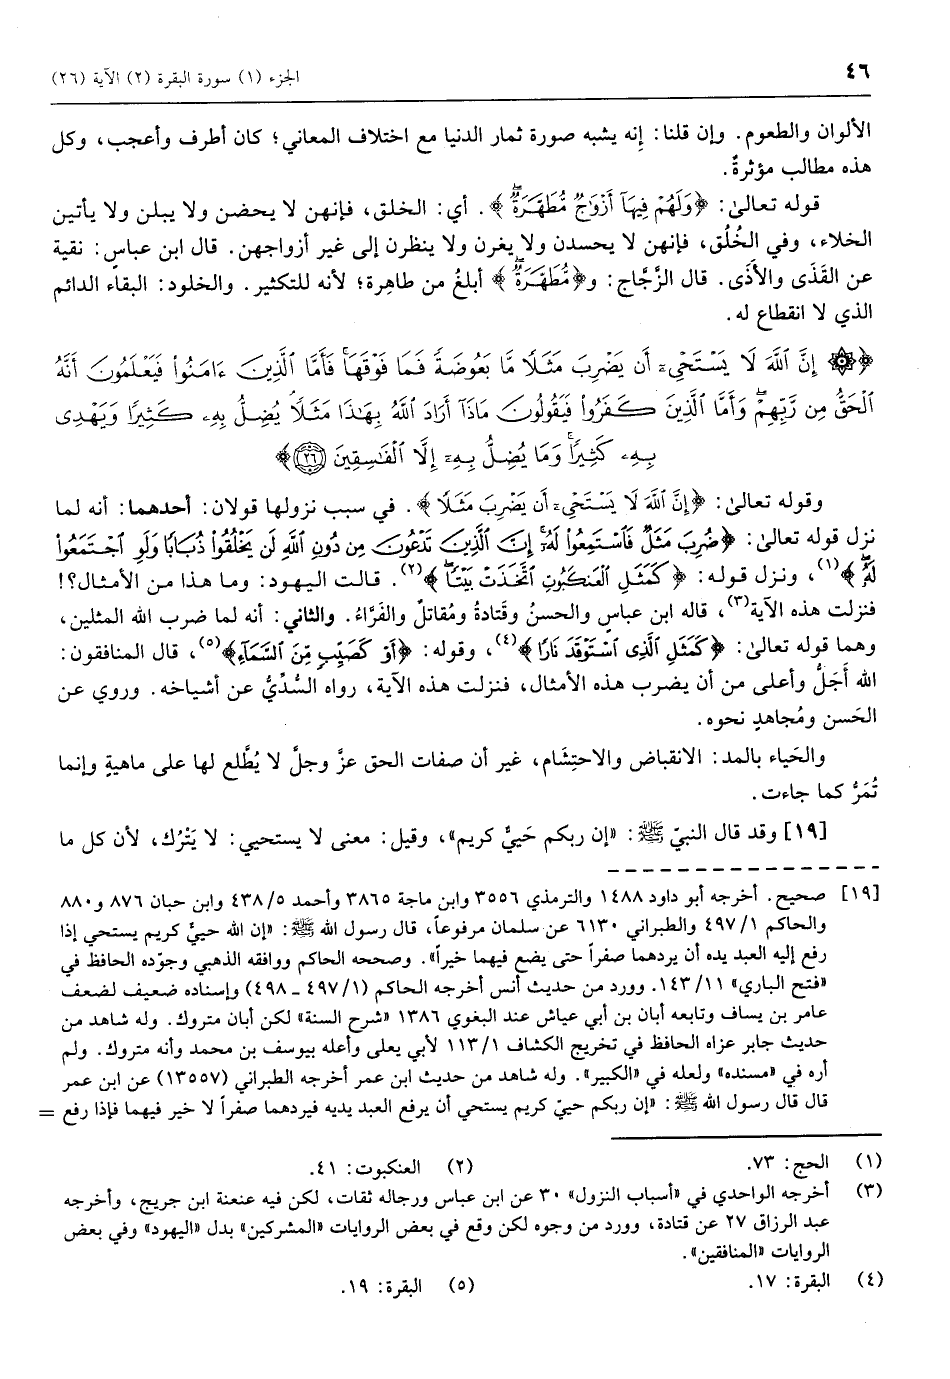 ٤٦
الجزء (١) سورة البقرة (٢) الآية (٢٦)
الألوان والطعوم. وإن قلنا: إنه يشبه صورة ثمار الدنيا مع اختلاف المعاني؛ كان أطرف وأعجب، وكل
هذه مطالب مؤثرةٌ.
قوله تعالىٰ: ﴿وَلَهُمْ فِيهَآ أَزْوَٰجٌ مُّطَهَّرَةٌۖ﴾. أي: الخلق، فإنهن لا يحضن ولا يبلن ولا يأتين
الخلاء، وفي الخُلُق، فإنهن لا يحسدن ولا يغرن ولا ينظرن إلى غير أزواجهن. قال ابن عباسٍ: نقية
عن القَذَى والأَذَى. قال الزَّجاج: و﴿مُّطَهَّرَةٌۖ﴾ أبلغُ من طاهِرة؛ لأنه للتكثير. والخلود: البقاء الدائم
الذي لا انقطاع له.
﴿۞ إِنَّ ٱللَّهَ لَا يَسْتَحْىِۦٓ أَن يَضْرِبَ مَثَلًا مَّا بَعُوضَةً فَمَا فَوْقَهَاۚ فَأَمَّا ٱلَّذِينَ ءَامَنُوا۟ فَيَعْلَمُونَ أَنَّهُ
ٱلْحَقُّ مِن رَّبِّهِمْۖ وَأَمَّا ٱلَّذِينَ كَفَرُوا۟ فَيَقُولُونَ مَاذَآ أَرَادَ ٱللَّهُ بِهَٰذَا مَثَلًاۘ يُضِلُّ بِهِۦ كَثِيرًا وَيَهْدِى
بِهِۦ كَثِيرًاۚ وَمَا يُضِلُّ بِهِۦٓ إِلَّا ٱلْفَٰسِقِينَ ٢٦﴾
وقوله تعالىٰ: ﴿إِنَّ ٱللَّهَ لَا يَسْتَحْىِۦٓ أَن يَضْرِبَ مَثَلًا﴾. في سبب نزولها قولان: أحدهما: أنه لما
نزل قوله تعالىٰ: ﴿ضُرِبَ مَثَلٌ فَٱسْتَمِعُوا۟ لَهُۥٓۚ إِنَّ ٱلَّذِينَ تَدْعُونَ مِن دُونِ ٱللَّهِ لَن يَخْلُقُوا۟ ذُبَابًا وَلَوِ ٱجْتَمَعُوا۟
لَهُۥۖ﴾(١)، ونزل قوله: ﴿كَمَثَلِ ٱلْعَنكَبُوتِ ٱتَّخَذَتْ بَيْتًاۖ﴾(٢). قالت اليهود: وما هذا من الأمثال؟!
فنزلت هذه الآية(٣)، قاله ابن عباس والحسنُ وقَتادةُ ومُقاتلٌ والفَرَّاءُ. والثاني: أنه لما ضرب الله المثلين،
وهما قوله تعالىٰ: ﴿كَمَثَلِ ٱلَّذِى ٱسْتَوْقَدَ نَارًا﴾(٤)، وقوله: ﴿أَوْ كَصَيِّبٍ مِّنَ ٱلسَّمَآءِ﴾(٥)، قال المنافقون:
الله أَجَلُّ وأعلى من أن يضرب هذه الأمثال، فنزلت هذه الآية، رواه السُّدِّيُّ عن أشياخه. وروي عن
الحَسن ومُجاهدٍ نحوه.
والحَياء بالمد: الانقباض والاحتِشَام، غير أن صفات الحق عزَّ وجلَّ لا يُطَّلع لها على ماهيةٍ وإنما
تُمَرُّ كما جاءت.
[١٩] وقد قال النبيّ ﷺ: «إن ربكم حَييٌّ كريم»، وقيل: معنى لا يستحيي: لا يَتْرُك، لأن كل ما
[١٩] صحيح. أخرجه أبو داود ١٤٨٨ والترمذي ٣٥٥٦ وابن ماجة ٣٨٦٥ وأحمد ٤٣٨/٥ وابن حبان ٨٧٦ و٨٨٠
والحاكم ٤٩٧/١ والطبراني ٦١٣٠ عن سلمان مرفوعاً، قال رسول الله ﷺ: «إن الله حييٌّ كريم يستحي إذا
رفع إليه العبد يده أن يردهما صفراً حتى يضع فيهما خيراً». وصححه الحاكم ووافقه الذهبي وجوّده الحافظ في
«فتح الباري» ١٤٣/١١. وورد من حديث أنس أخرجه الحاكم (٤٩٧/١ ـ ٤٩٨) وإسناده ضعيف لضعف
عامر بن يساف وتابعه أبان بن أبي عياش عند البغوي ١٣٨٦ «شرح السنة» لكن أبان متروك. وله شاهد من
حديث جابر عزاه الحافظ في تخريج الكشاف ١١٣/١ لأبي يعلى وأعله بيوسف بن محمد وأنه متروك. ولم
أره في «مسنده» ولعله في «الكبير». وله شاهد من حديث ابن عمر أخرجه الطبراني (١٣٥٥٧) عن ابن عمر
قال قال رسول الله ﷺ: «إن ربكم حييّ كريم يستحي أن يرفع العبد يديه فيردهما صفراً لا خير فيهما فإذا رفع =
(١) الحج: ٧٣. (٢) العنكبوت: ٤١.
(٣) أخرجه الواحدي في «أسباب النزول» ٣٠ عن ابن عباس ورجاله ثقات، لكن فيه عنعنة ابن جريج، وأخرجه
عبد الرزاق ٢٧ عن قتادة، وورد من وجوه لكن وقع في بعض الروايات «المشركين» بدل «اليهود» وفي بعض
الروايات «المنافقين».
(٤) البقرة: ١٧. (٥) البقرة: ١٩.